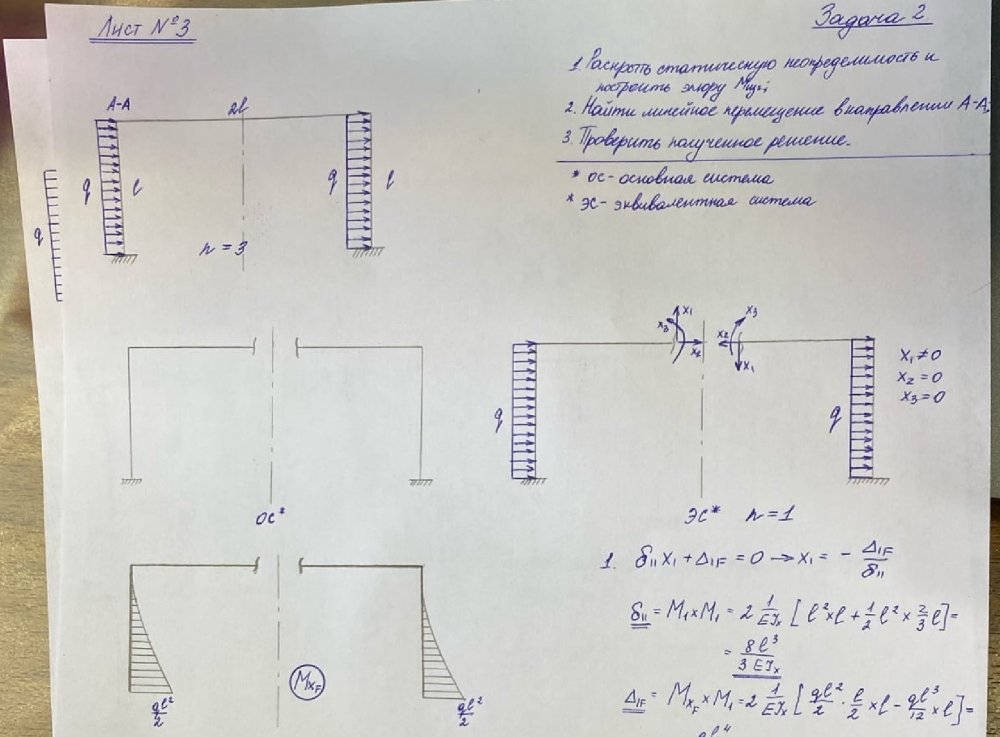 Лист №3
Задача 2
1. Раскрыть статическую неопределимость и
построить эпюру Mизг;
2. Найти линейное перемещение в направлении А-А;
3. Проверить полученное решение.
* ОС - основная система
* ЭС - эквивалентная система
A-A
2l
q
l
q
l
q
n = 3
x3
x1
x2
x2
x3
x1
q
q
x1 ≠ 0
x2 = 0
x3 = 0
ОС*
ЭС* n = 1
1. δ11 x1 + Δ1F = 0 → x1 = - Δ1F/δ11
δ11 = M1 × M1 = 2 1/EJx [ l² × l + 1/2 l² × 2/3 l ] =
= 8l³/3EJx
MxF
ql²/2
ql²/2
Δ1F = MxF × M1 = 2 1/EJx [ ql²/2 · l/2 × l - ql³/12 × l ] =